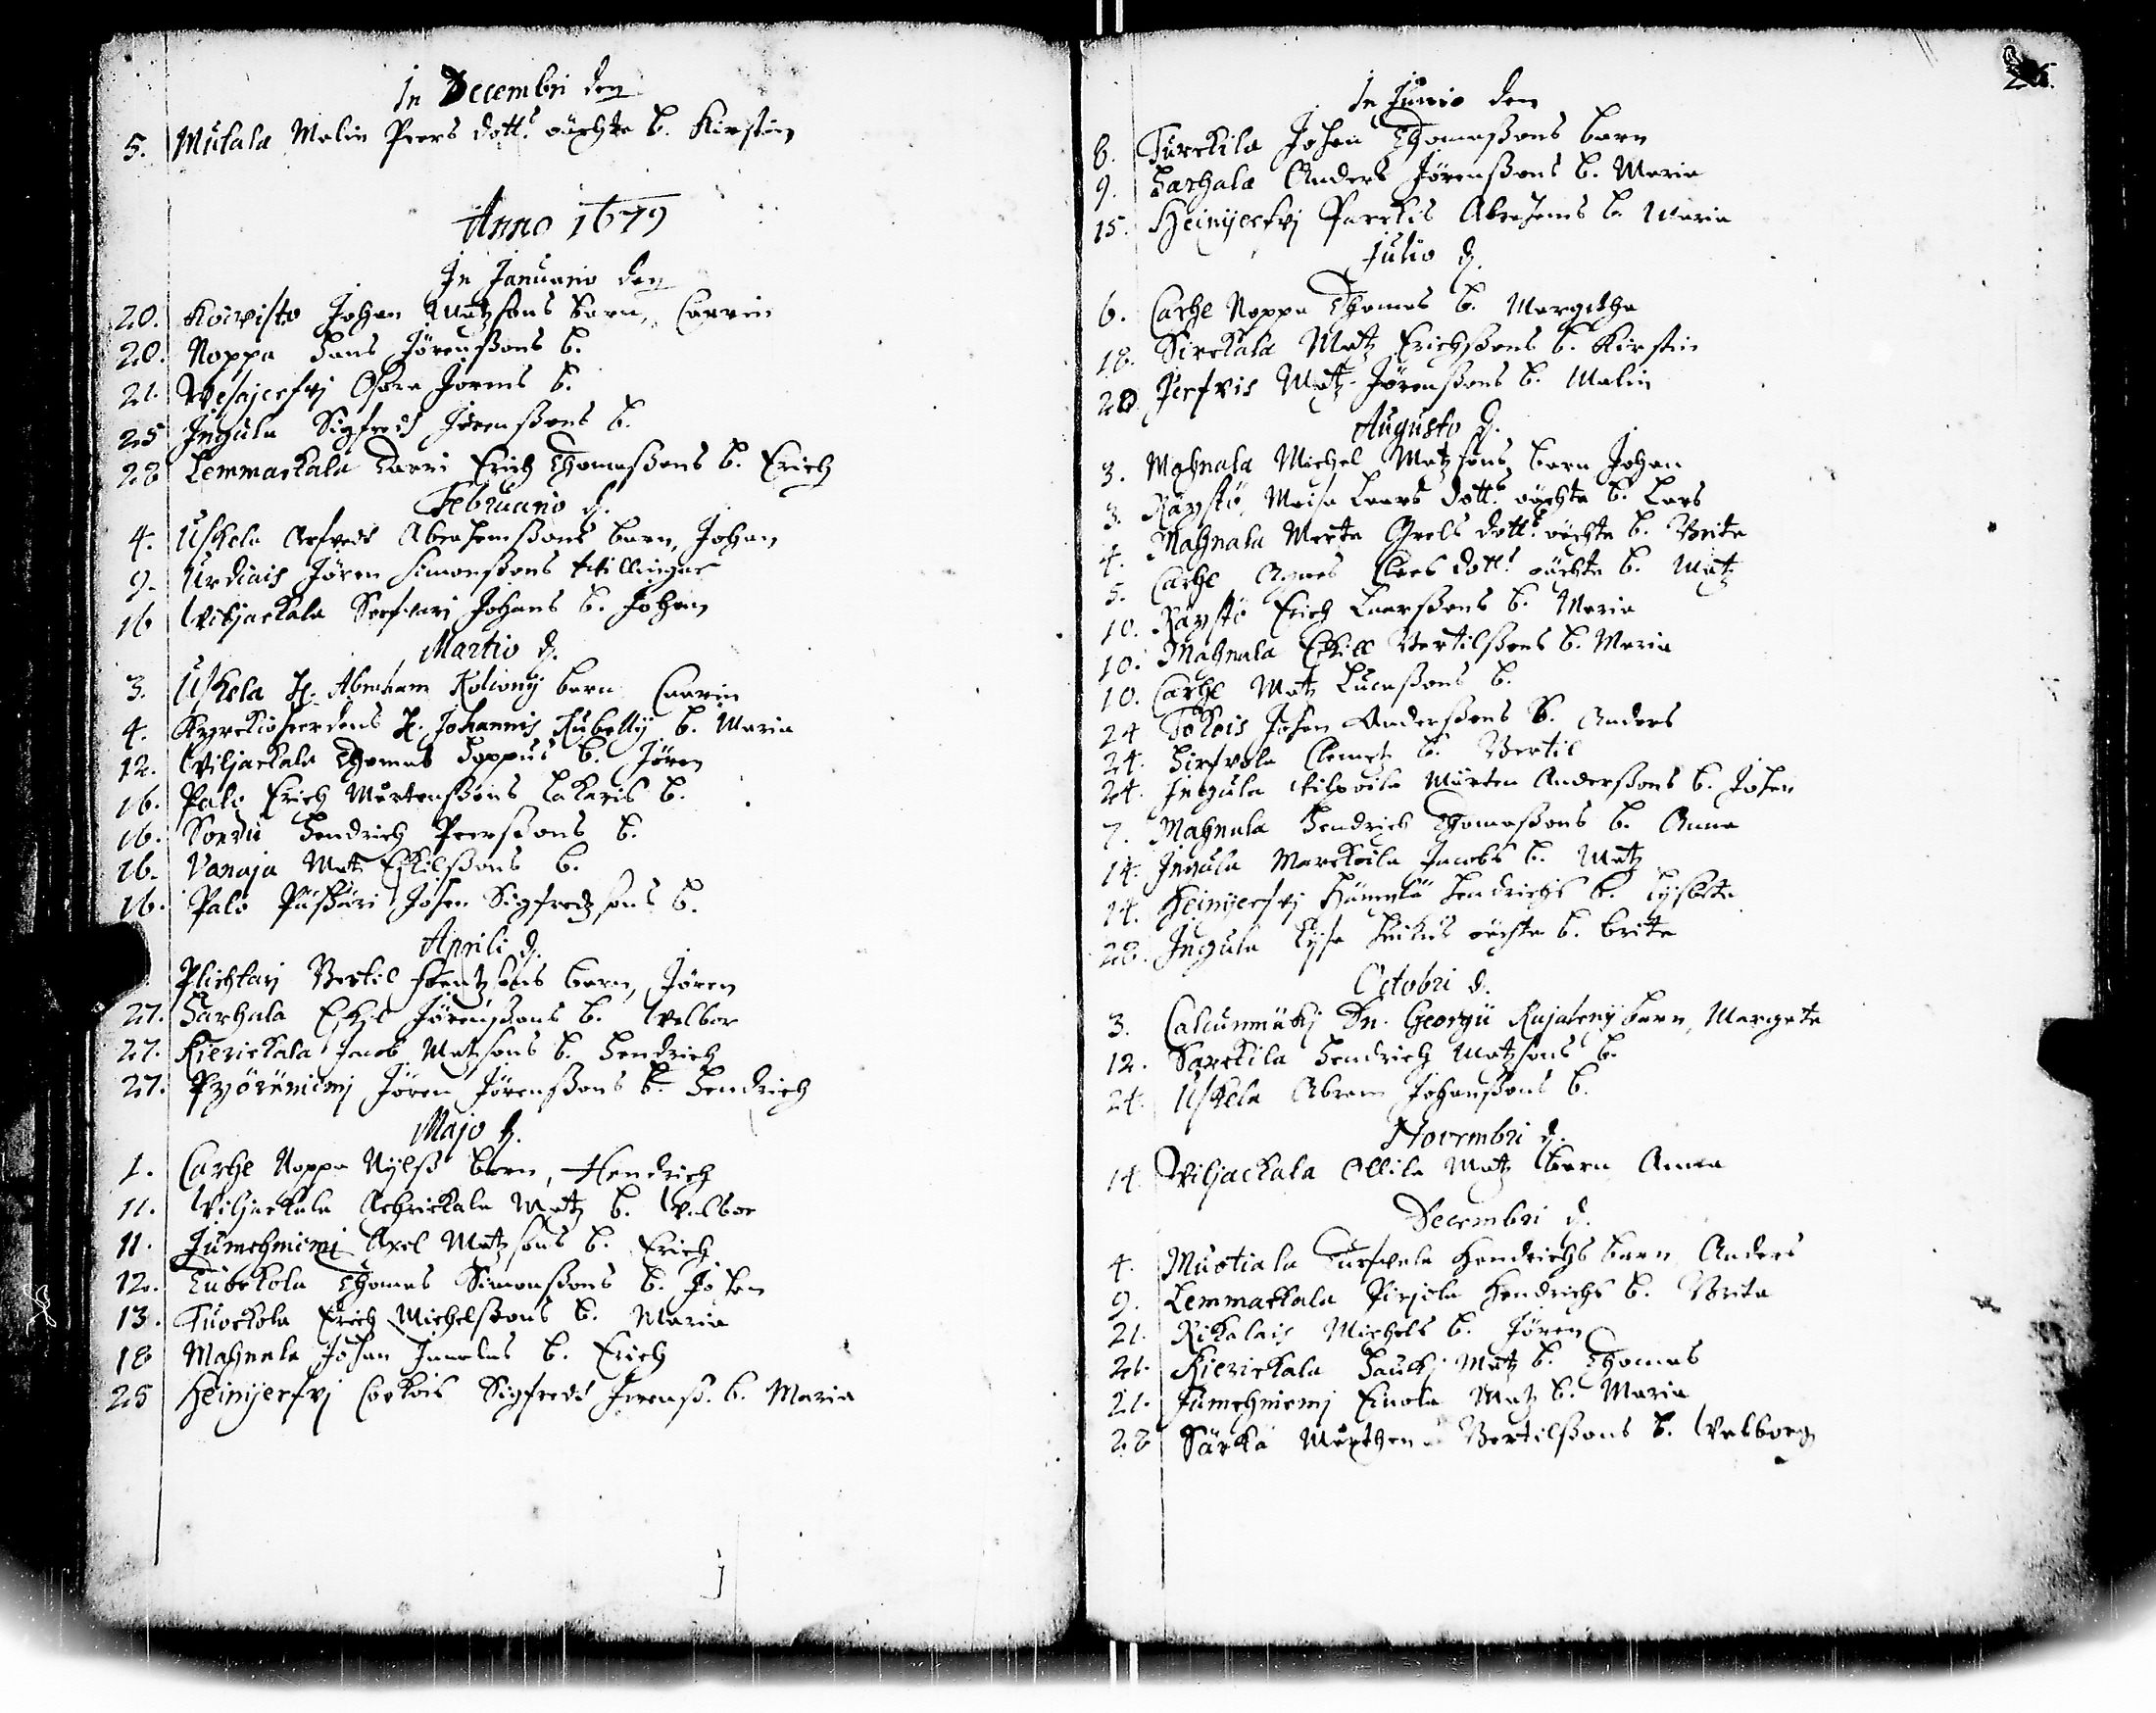 In Decembri den
5. Mutala Malin Peers dott.s oächte b. Kirstin
Anno 1679
In Januario den
20. Koivisto Johan Matzsons barn, Caarin
20. Noppa Hans Jörenßons b.
21. Wesajerfvj Jörens b.
25 Ingula Sigfreds Jörenßons b.
28 Lemmackala Erich Thomaßons b. Erich
Februario d.
4. Uskela Arfveds Abrahamßons barn, Johan
9. Urdiais Jören Simonßons tvillingar
16 Wiljackala Johans b. Johan
Martio d.
3. Uskela H. Abraham Kolionij barn Caarin
4. Kyrckioheerdens H. Johannis Rubelly b. Maria
12. Wiljackala Thomas Hoppus b. Jören
16. Palo Erich Mårtenßons b.
16. Sordu Hendrich Peersßons b.
16. Vanaja Matz Eskilßons b.
16. Palo Johan Sigfredzsons b.
Aprili d.
Plichtarj Bertil Frantzsons barn, Jören
27. Harhala Eskil Jörenßons b. Welbor
27. Kierickala Jacob Matzsons b. Hendrich
27. Pyöräniemj Jören Jörenßons b. Hendrich
Majo d.
1. Carhe Noppa Nijlß barn, Hendrich
11. Wiljackala Matz b. Walbor
11. Jumehniemj Axel Matzsons b. Erich
12. Tuorkola Thomas Simonßons b. Johan
13. Tuorkola Erich Michelßons b. Maria
18 Mahnala Johan b. Erich
25 Heinijerfvj Corkois Sigfreds Jörenß. b. Maria
In Junio den
8. Turckila Johan Thomaßons barn
9. Harhala Anders Jörenßons b. Maria
15. Heinijerfvj Abrahams b. Maria
Julio d.
6. Carhe Noppa Thomas b. Margetha
18. Sirckala Matz Erichßons b. Kirstin
20 Jerfvis Matz Jörenßons b. Malin
Augusto d.
3. Mahnala Michel Matzsons barn Johan
3. Räystö, Maisa Laars dott.s oächte b. Lars
4. Mahnala Merta Grels dott.s oächte b. Brita
5. Carhe Agnes Claes dott.s oächte b. Matz
10. Räystö Erich Laarßons b. Maria
10. Mahnala Eskill Bertilßons b. Maria
10. Carhe Matz Lucaßons b.
24 Tokois Johan Anderßons b. Anders
24. Hirfvola Clemet b. Bertil
24. Ingula Mårten Anderßons b. Johan
7. Mahnala Hendrich Thomaßons b. Anna
14. Ingula Marckoila Jacobs b. Matz
14. Heinijerfvj Hendrichs b. Lijsbeta
28. Ingula Lijsa oächta b. Brita
Octobri d.
3. Calcunmäkj Dn. Georgii Rajalenij barn, Margeta
12. Sarckila Hendrich Matzsons b.
24. Uskela Abram Johanßons b.
Novembri d.
14. Wiljackala Ollila Matz barn Anna
Decembri d.
4. Muotiala Turfvola Hendrichs barn Anders
9. Lemmackala Pirjola Hendrichs b. Brita
21. Rikalais Michels b. Jören
21. Kierickala Haukj Matz b. Thomas
21. Jumehniemj Einola Matz b. Maria
28 Särkä Mårthen Bertilßons b. Walborg